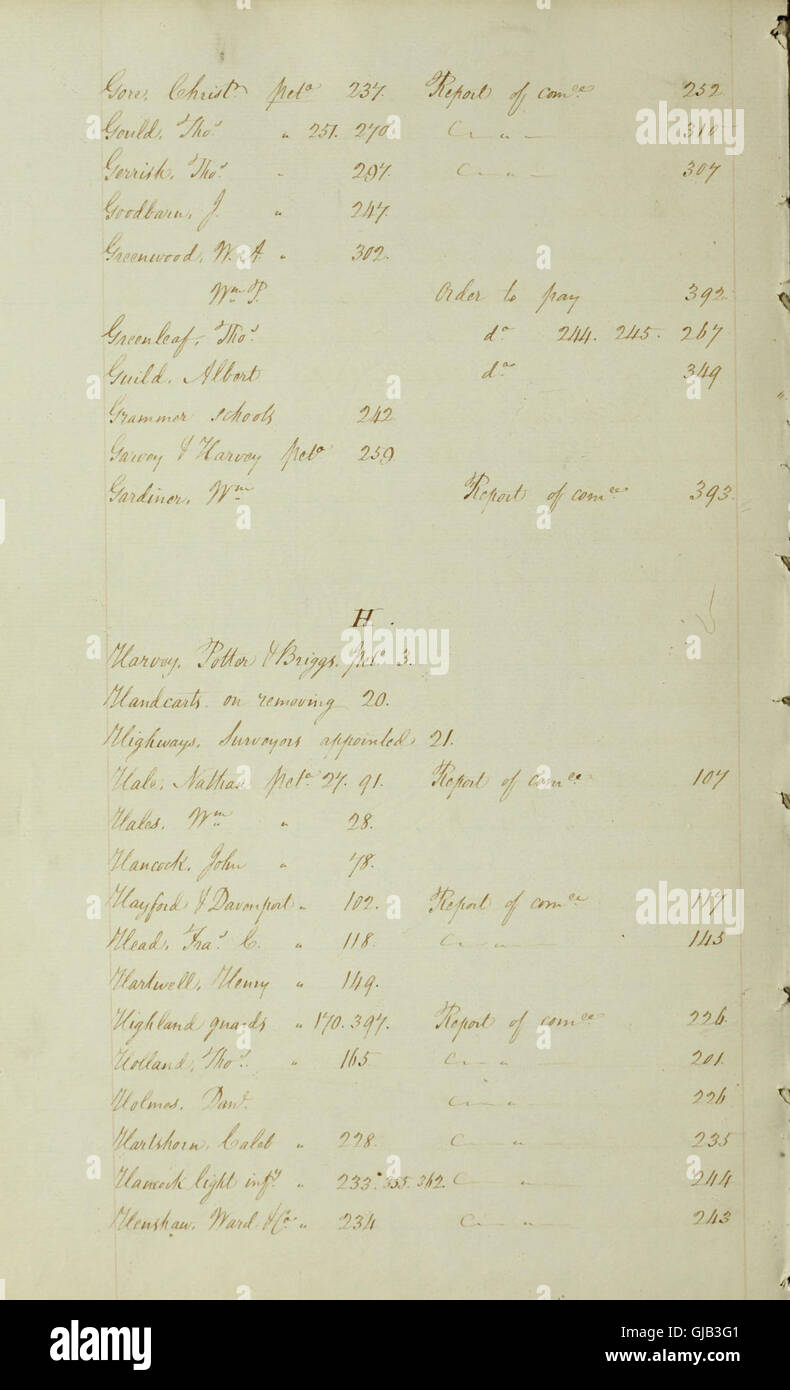 Gore, Christr petn 237. Report of comee 252
Gould, Thos " 251. 270. " 310
Gerrish, Thos " 297. " 307
Goodbarn, J. " 247.
Greenwood, W. A " 302.
Wm P. Order to pay 392
Greenleaf, Thos do 244. 245. 267
Guild, Albert do 349
Grammer schools 242
Garvey & Harvey petn 259
Gardiner, Wm Report of comee 393.
H.
Harvey, Potter & Briggs, petn 3.
Handcarts on removing 20.
Highways, Surveyors appointed, 21.
Hale, Nathan petn 27. 91. Report of comee 107
Hales, Wm " 28.
Hancock, John " 78.
Hayford & Davenport " 102. Report of comee 117
Head, Fras C. " 118 " 145
Hartwell, Henry " 149.
Highland guards " 170. 397. Report of comee 226
Holland, Thos " 165 " 201.
Holmes, Danl. " 226
Hartshorn, Caleb " 228. " 235
Hancock light infy " 233. 355. 362. " 244
Henshaw, Ward & Co " 234 " 243
alamy
Image ID: GJB3G1
www.alamy.com